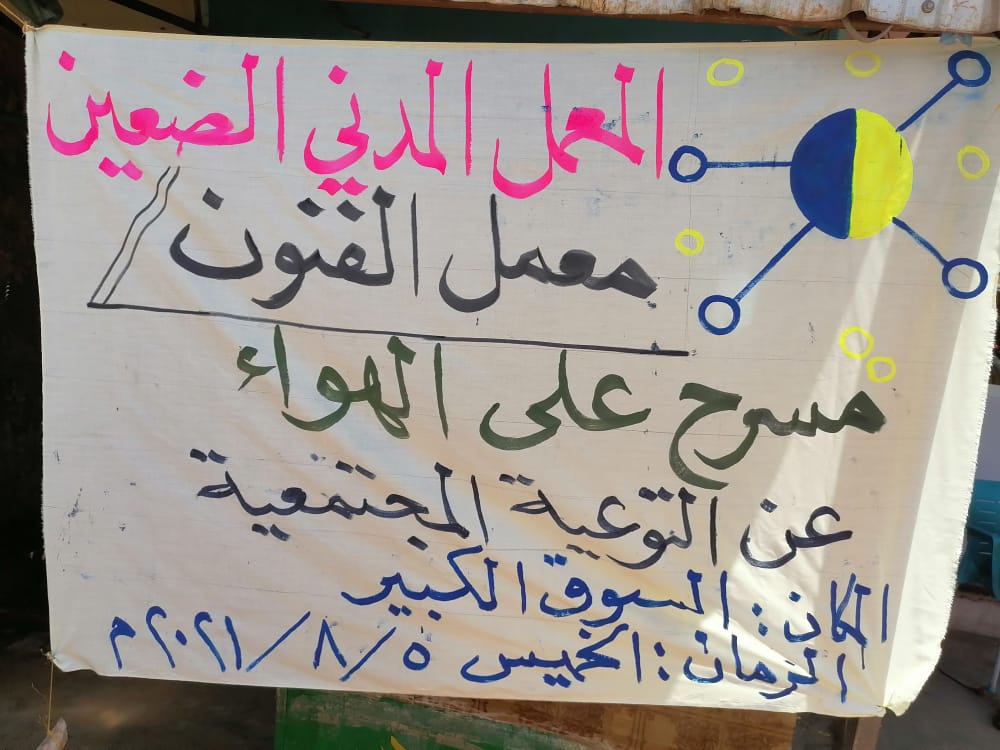 المعمل المدني الضعين
معمل الفنون
مسرح على الهواء
عن التوعية المجتمعية
المكان: السوق الكبير
الزمان: الخميس ٥/٨/٢٠٢١م